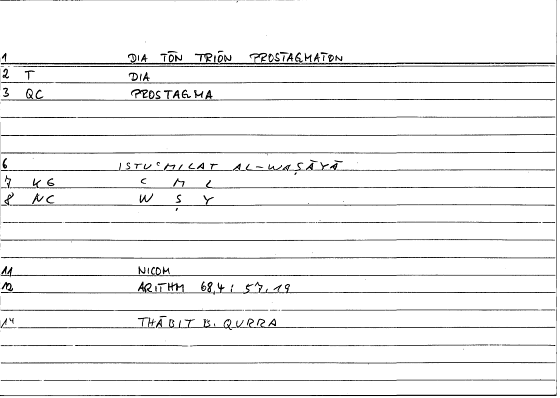 1 DIA TŌN TRIŌN PROSTAGMATŌN
2 T DIA
3 QC PROSTAGMA
6 ISTUʿMILAT AL-WAṢĀYĀ
7 KG C M L
8 NC W Ṣ Y
11 NICOM
12 ARITHM 68,4 : 57,19
14 THĀBIT B. QURRA